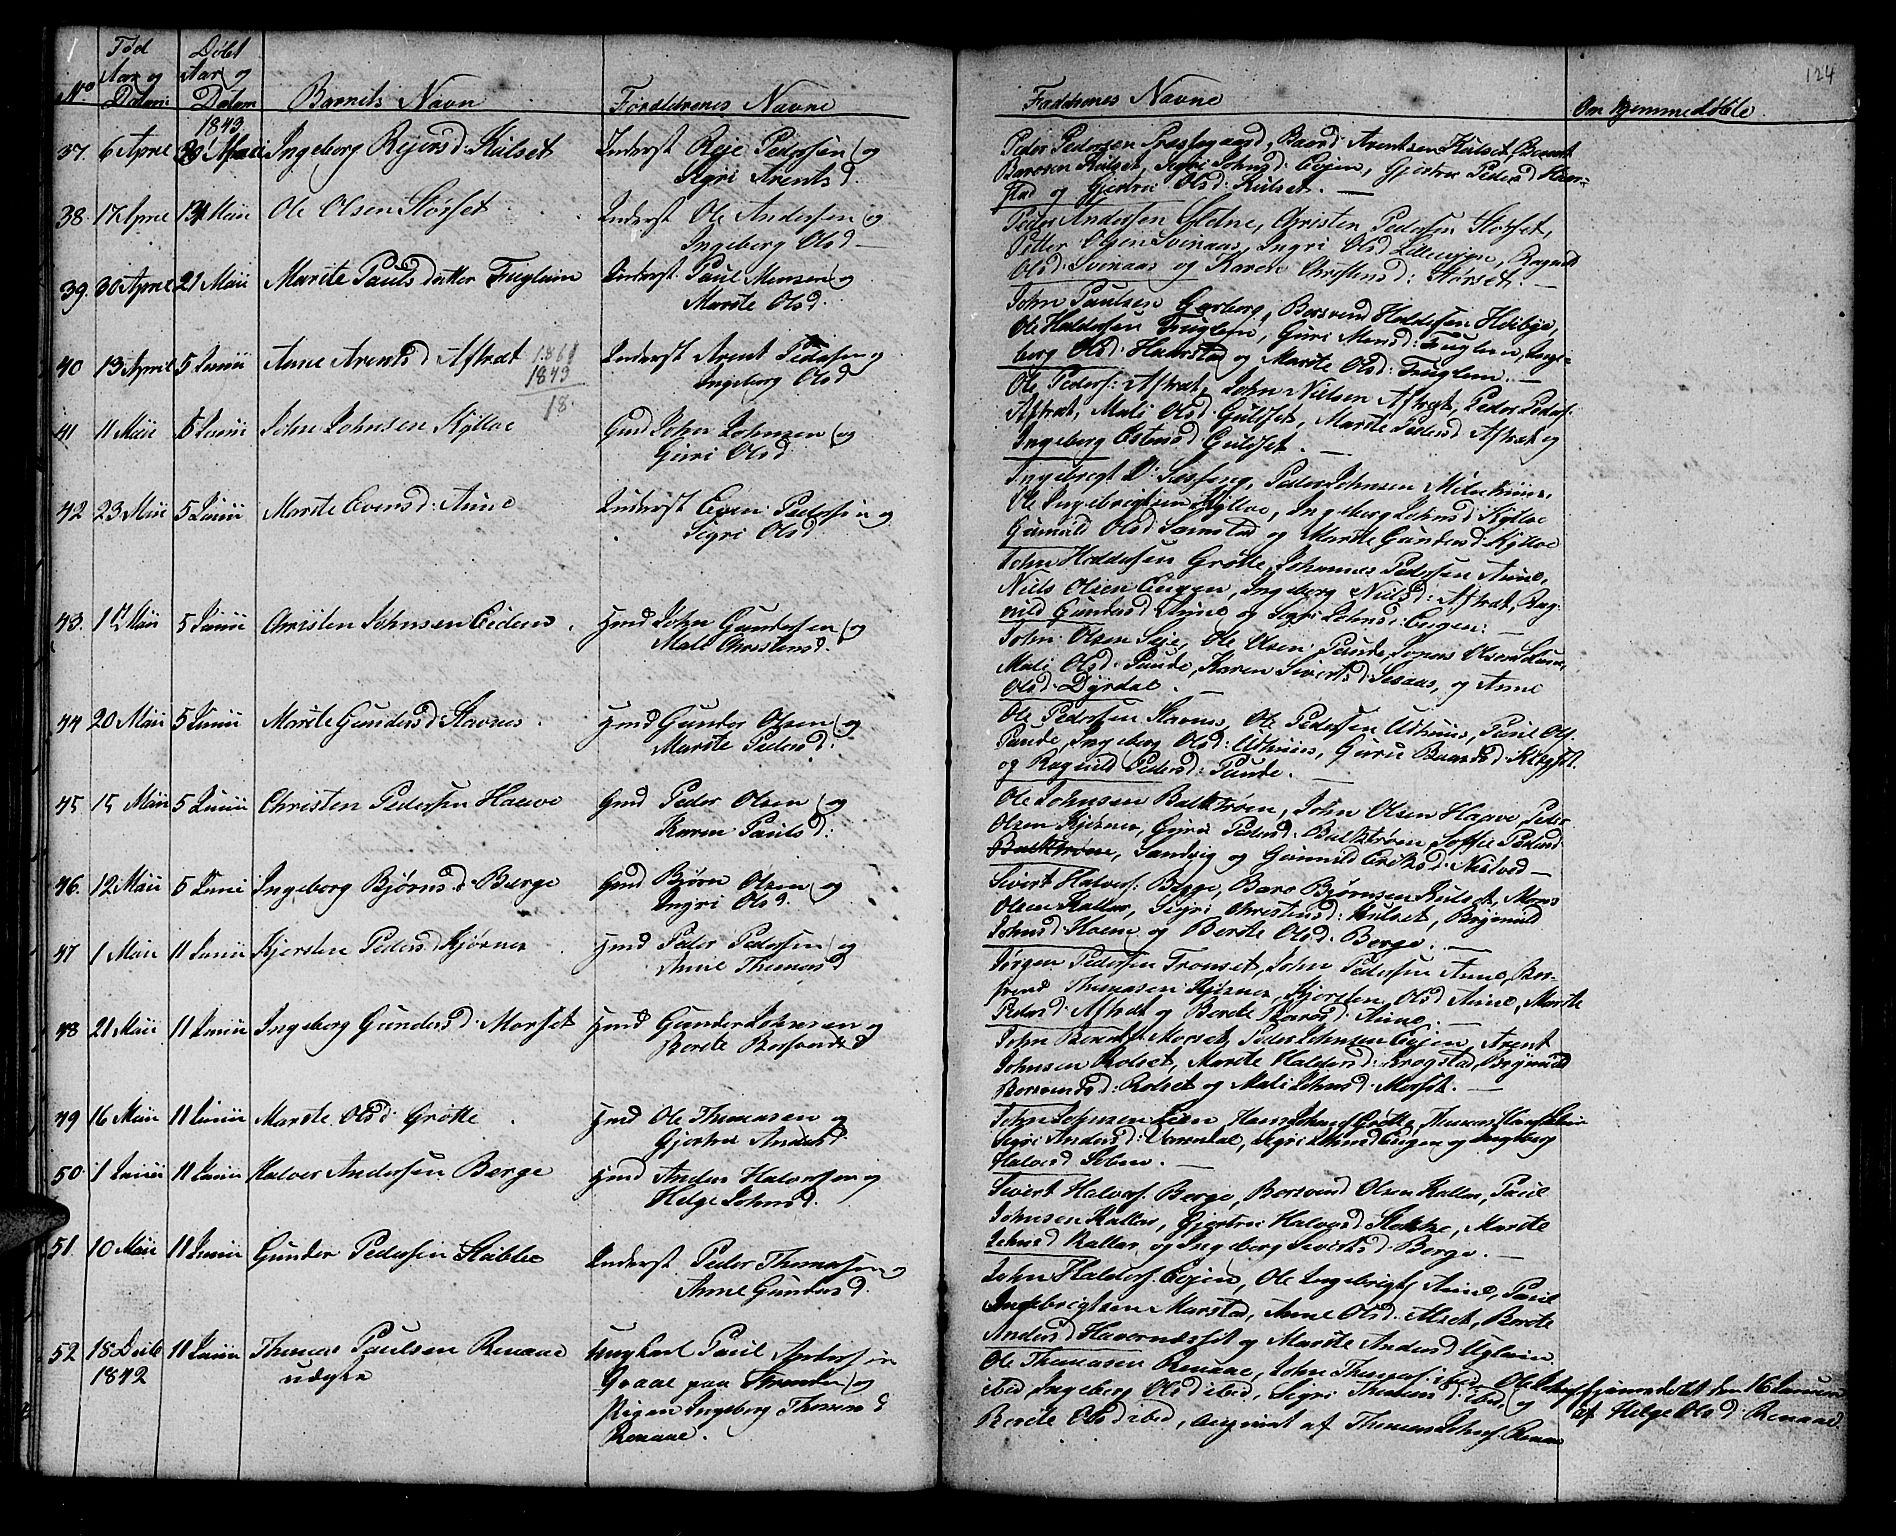 124
Nº
Fød Aar og Datum
Døbt Aar og Datum
Barnets Navn
Forældrenes Navne
Faddernes Navne
Om hjemmedøbt
1843
37. 6 April 30 April Ingeborg Rejersd Kulset Inderst Reje Pedersen og
Sigri Arentsd
Peder Pedersen Præstegaard, Baard Arentsen Kulset, Berent
Baarsen Kulset, Sigri Johnsd: Evjen, Gjertru Pedersd Haar-
stad og Gjertru Olsd: Kulset.
38. 17 April 14 Maii Ole Olsen Storset Inderst Ole Andersen og
Ingeborg Olsd
Peder Andersen Sletne, Christen Pedersen Storset,
Petter Olsen Svinaas, Ingri Olsd Lillevign, Ragnil
Olsd: Svinaas og Karen Christensd: Storset.
39. 30 April 21 Maii Marite Paulsdatter Fuglem Inderst Paul Monsen og
Marite Olsd
John Paulsen Garberg, Borsvend Haldorsen Hoiby,
Ole Haldorsen Fuglem, Guri Monsd: Fuglem, Inge-
borg Olsd: Haarstad og Marite Olsd: Fuglem.
40 13 April 5 Junii Anne Arentsd Aftret Inderst Arent Pedersen og
Ingeborg Olsd
1861
1843
18.
Ole Peders: Aftret, John Nielsen Aftret, Peder Peders:
Aftret, Mali Olsd Guldset, Marite Pedersd Aftret og
Ingeborg Estensd Guldset.
41 11 Maii 5 Junii John Johnsen Kylloe Gmd John Johnsen og
Guri Olsd
Ingebrigt O: Sesseng, Peder Johnsen Mebuhuus,
Ole Ingebrigtsen Kylloe, Ingeborg Johnsd: Kylloe
Gunnild Olsd Samstad og Marite Gundersd Kylloe
42 23 Maii 5 Junii Marite Evensd: Aune Inderst Even Pedersen og
Sigri Olsd
John Haldorsen Grøtte, Johannes Pedersen Aune,
Niels Olsen Eugen, Ingeborg Nielsd: Aftret, Rag-
nild Gundersd Aune og Sigri Johnsd: Eugen.
43. 1 Maii 5 Junii Christen Johnsen Eidem Hmd John Gundersen og
Mali Christensd.
John Olsen Seje, Ole Olsen Funde,
Mali Olsd: Funde, Karen Sivertsd Sesaas, og Anne
Olsd: Dyrdal.
44 20 Maii 5 Junii Marite Gundersd Slavnes Hmd Gunder Olsen og
Marite Pedersd:
Ole Pedersen Slavnes, Ole Pedersen Udhuus, Paul Ols:
Funde, Ingeborg Olsd: Udhuus, Guru Baardsd:
og Ragnild Pedersd: Funde.
45 15 Maii 5 Junii Christen Pedersen Haave Gmd Peder Olsen og
Karen Paulsd:
Ole Johnsen Balstrøen, John Olsen Haave, Peder
Olsen Kjøsnes, Guru Pedersd: Balstrøen Soffie Pedersd
Balstrøen, Sandvig og Gunnild Eriksd:
46. 12 Maii 5 Juni Ingeborg Bjørnsd Berge Gmd Bjørn Olsen og
Ingri Olsd.
Sivert Halvors: Berge, Baro Bjørnsen Kulset, Mons
Olsen Kallar, Sigri Christensd: Kulset, Brynild
Johnsd: Moen og Berite Olsd: Berge.
47 1 Maii 11 Junii Kjersten Pedersd Kjøsnes Hmd Peder Pedersen og
Anne Thomasd
Jørgen Pedersen Tronset, John Pedersen Aune, Bor-
svend Thomasen Kjøsnes, Kjersten Olsd Aune, Marite
Pedersd: Aftret og Berite Larsd: Aune.
48 21 Maii 11 Junii Ingeborg Gundersd: Morset Hmd Gunder Johnsen og
Berete Borsvendsd
John Berents: Morset, Peder Johnsen Evjen, Arent
Johnsen Rolset, Marite Haldorsd: Krogstad, Brynild
Borsvendsd: Rolset og Mali Johnsd: Morset.
49 16 Maii 11 Junii Marite Olsd: Grøtte Hmd Ole Thomasen og
Gjertru Andersd:
John Johnsen Lien,
Sigri Andersd: og Ingeborg
Halvorsd
50 1 Junii 11 Junii Halvor Andersen Berge Hmd Anders Halvorsen og
Helge Johnsd.
Sivert Halvors: Berge, Borsvend Olsen Kallar, Paul
Johnsen Kallar, Gjertru Halvorsd: Stokke, Marite
Johnsd Kallar og Ingeborg Sivertsd: Berge.
51. 10 Maii 11 Junii Gunder Pedersen Stubbe Inderst Peder Thomasen og
Anne Gundersd.
John Haldors: Evjen, Ole Ingebrigts: Aune, Paul
Ingebrigtsen Marstad, Anne Olsd: Alset, Berite
Andersd og Marite Andersd Uglem.
52 18 Decbr 1842 11 Junii Thomas Paulsen Renaae
udegte
Ungkarl Paul Andersen
Graae paa og
Pigen Ingeborg Thomasd
Renaae.
Ole Thomasen Renaae, John Thomas: ibid
ibid, Ingeborg Olsd ibid, Sigri Thomasd: ibid og
Berite Olsd ibid, angivet af Thomas Johns: Renaae
hjemmedøbt den 16 Januar
af Helge Olsd: Renaae.